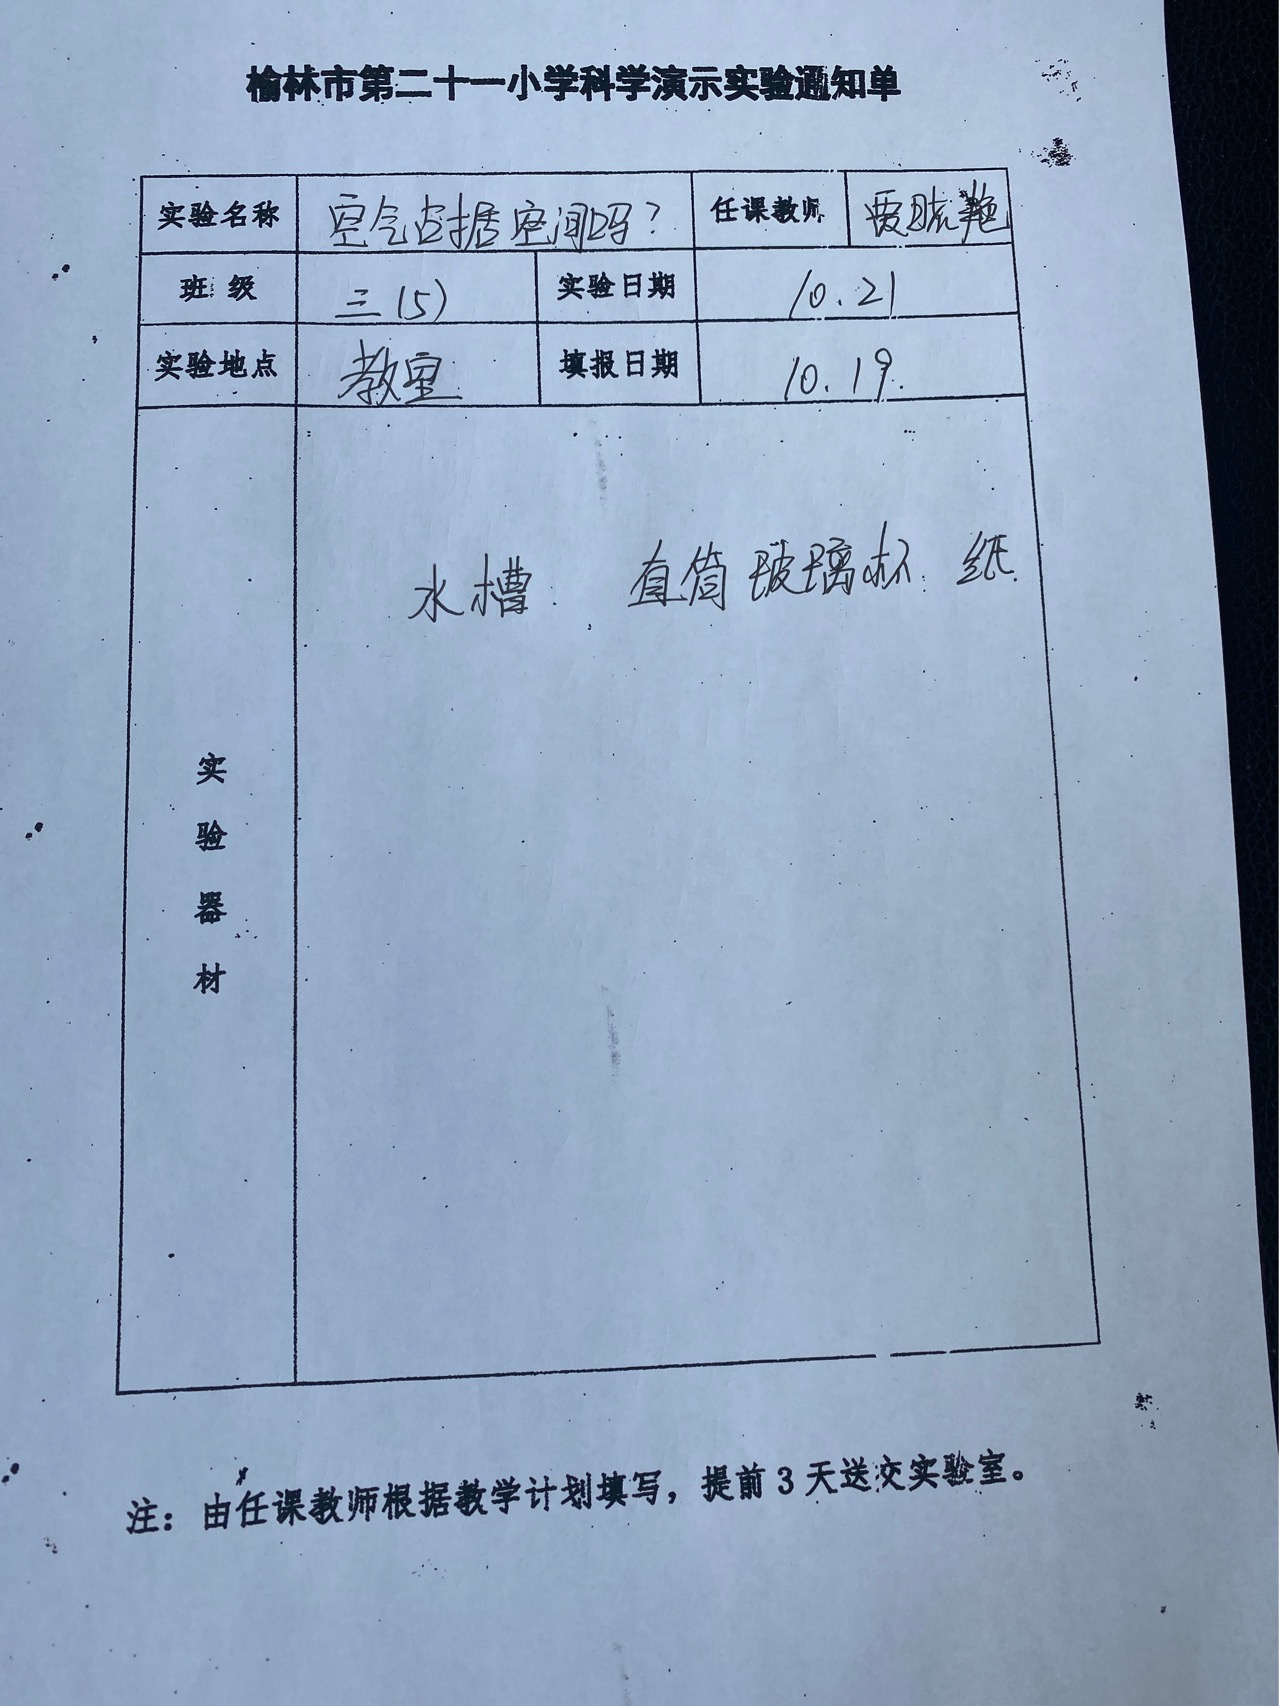 榆林市第二十一小学科学演示实验通知单
实验名称 空气占据空间吗? 任课教师 贾晓艳
班 级 三(5) 实验日期 10.21
实验地点 教室 填报日期 10.19.
水槽. 直筒玻璃杯. 纸.
实验器材
注：由任课教师根据教学计划填写，提前3天送交实验室。